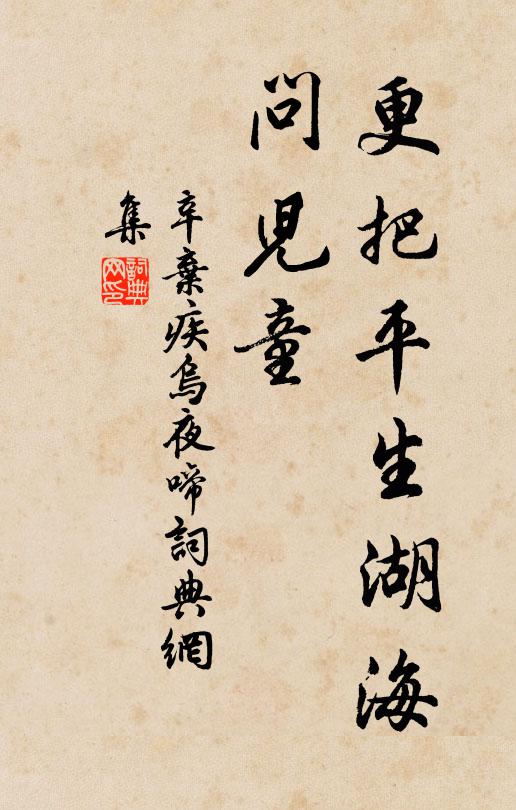 更把平生湖海
問兒童
辛棄疾烏夜啼詞典網
集
詞典
网印